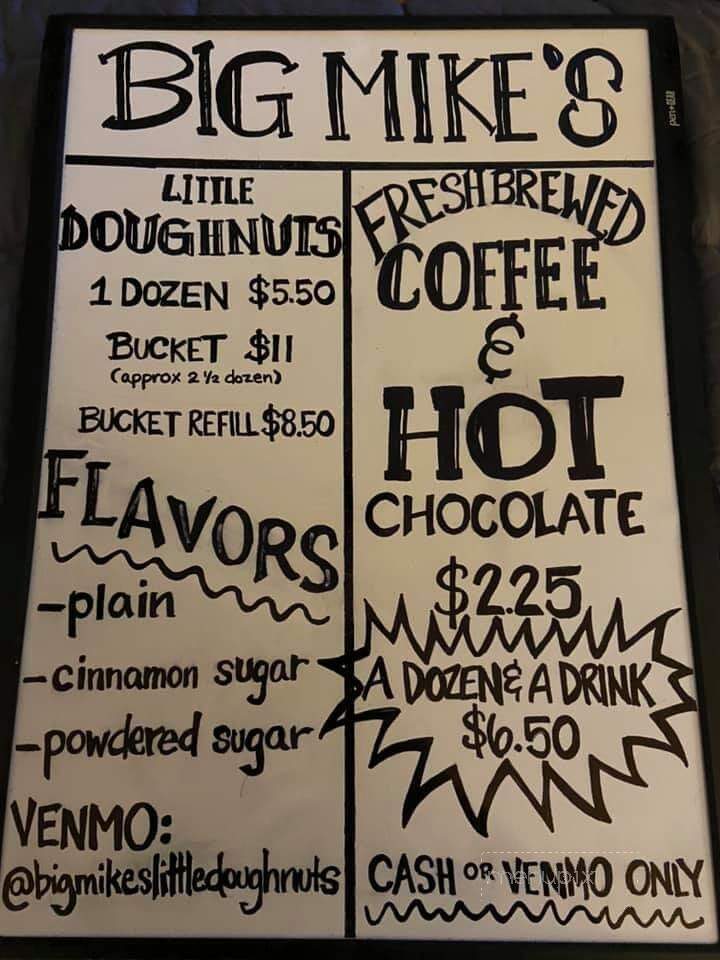 BIG MIKE'S
LITTLE
DOUGHNUTS
1 DOZEN $5.50
BUCKET $11
(approx 2 ½ dozen)
BUCKET REFILL $8.50
FLAVORS
-plain
-cinnamon sugar
-powdered sugar
VENMO:
@bigmikeslittledoughnuts
FRESH BREWED
COFFEE
&
HOT
CHOCOLATE
$2.25
A DOZEN & A DRINK
$6.50
CASH OR VENMO ONLY
menupix
pen+gear